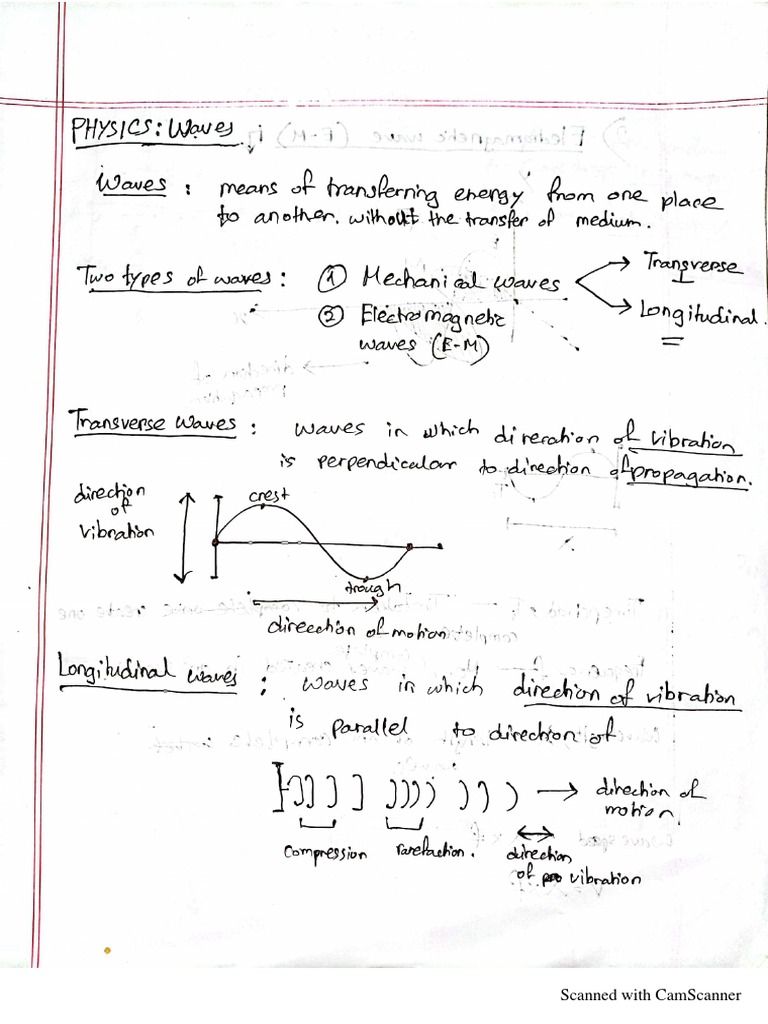 PHYSICS: Waves.
Waves : means of transferring energy from one place
to another. without the transfer of medium.
Two types of waves : ① Mechanical waves
Transverse
Longitudinal
② Electromagnetic
waves (E-M)
Transverse waves : waves in which direration of vibration
is perpendicular to direction of propagation.
direction
of
vibration
crest
trough
direection of motion
Longitudinal waves : waves in which direction of vibration
is parallel to direction of
direction of
motion.
compression rarefaction. direction
of vibration
Scanned with CamScanner